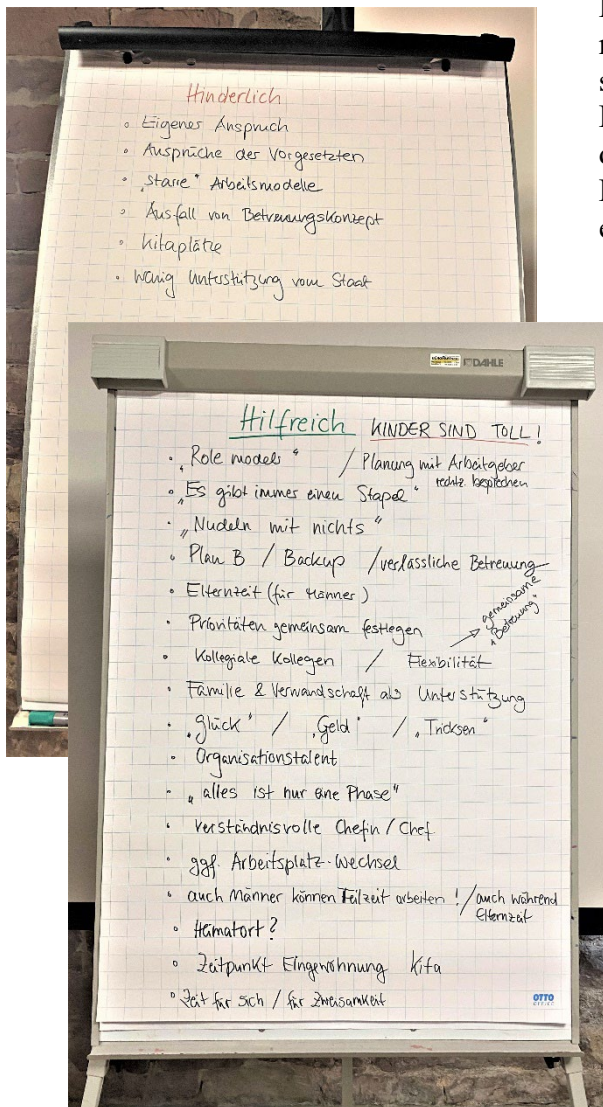 Hinderlich
• Eigener Anspruch
• Ansprüche der Vorgesetzten
• „starre“ Arbeitsmodelle
• Ausfall von Betreuungskonzept
• Kitaplätze
• wenig Unterstützung vom Staat
DAHLE
Hilfreich KINDER SIND TOLL!
• „Role models“ / Planung mit Arbeitgeber
rechtz. besprechen
• „Es gibt immer einen Stapel“
• „Nudeln mit nichts“
• Plan B / Backup / verlässliche Betreuung
• Elternzeit (für Männer)
• Prioritäten gemeinsam festlegen
gemeinsame
„Betreuung“
• Kollegiale Kollegen / Flexibilität
• Familie & Verwandschaft als Unterstützung
• „Glück“ / „Geld“ / „Tricksen“
• Organisationstalent
• „alles ist nur eine Phase“
• verständnisvolle Chefin / Chef
• ggf. Arbeitsplatz-Wechsel
• auch Männer können Teilzeit arbeiten! / auch während
Elternzeit
• Heimatort?
• Zeitpunkt Eingewöhnung Kita
• Zeit für sich / für Zweisamkeit
OTTO
OFFICE